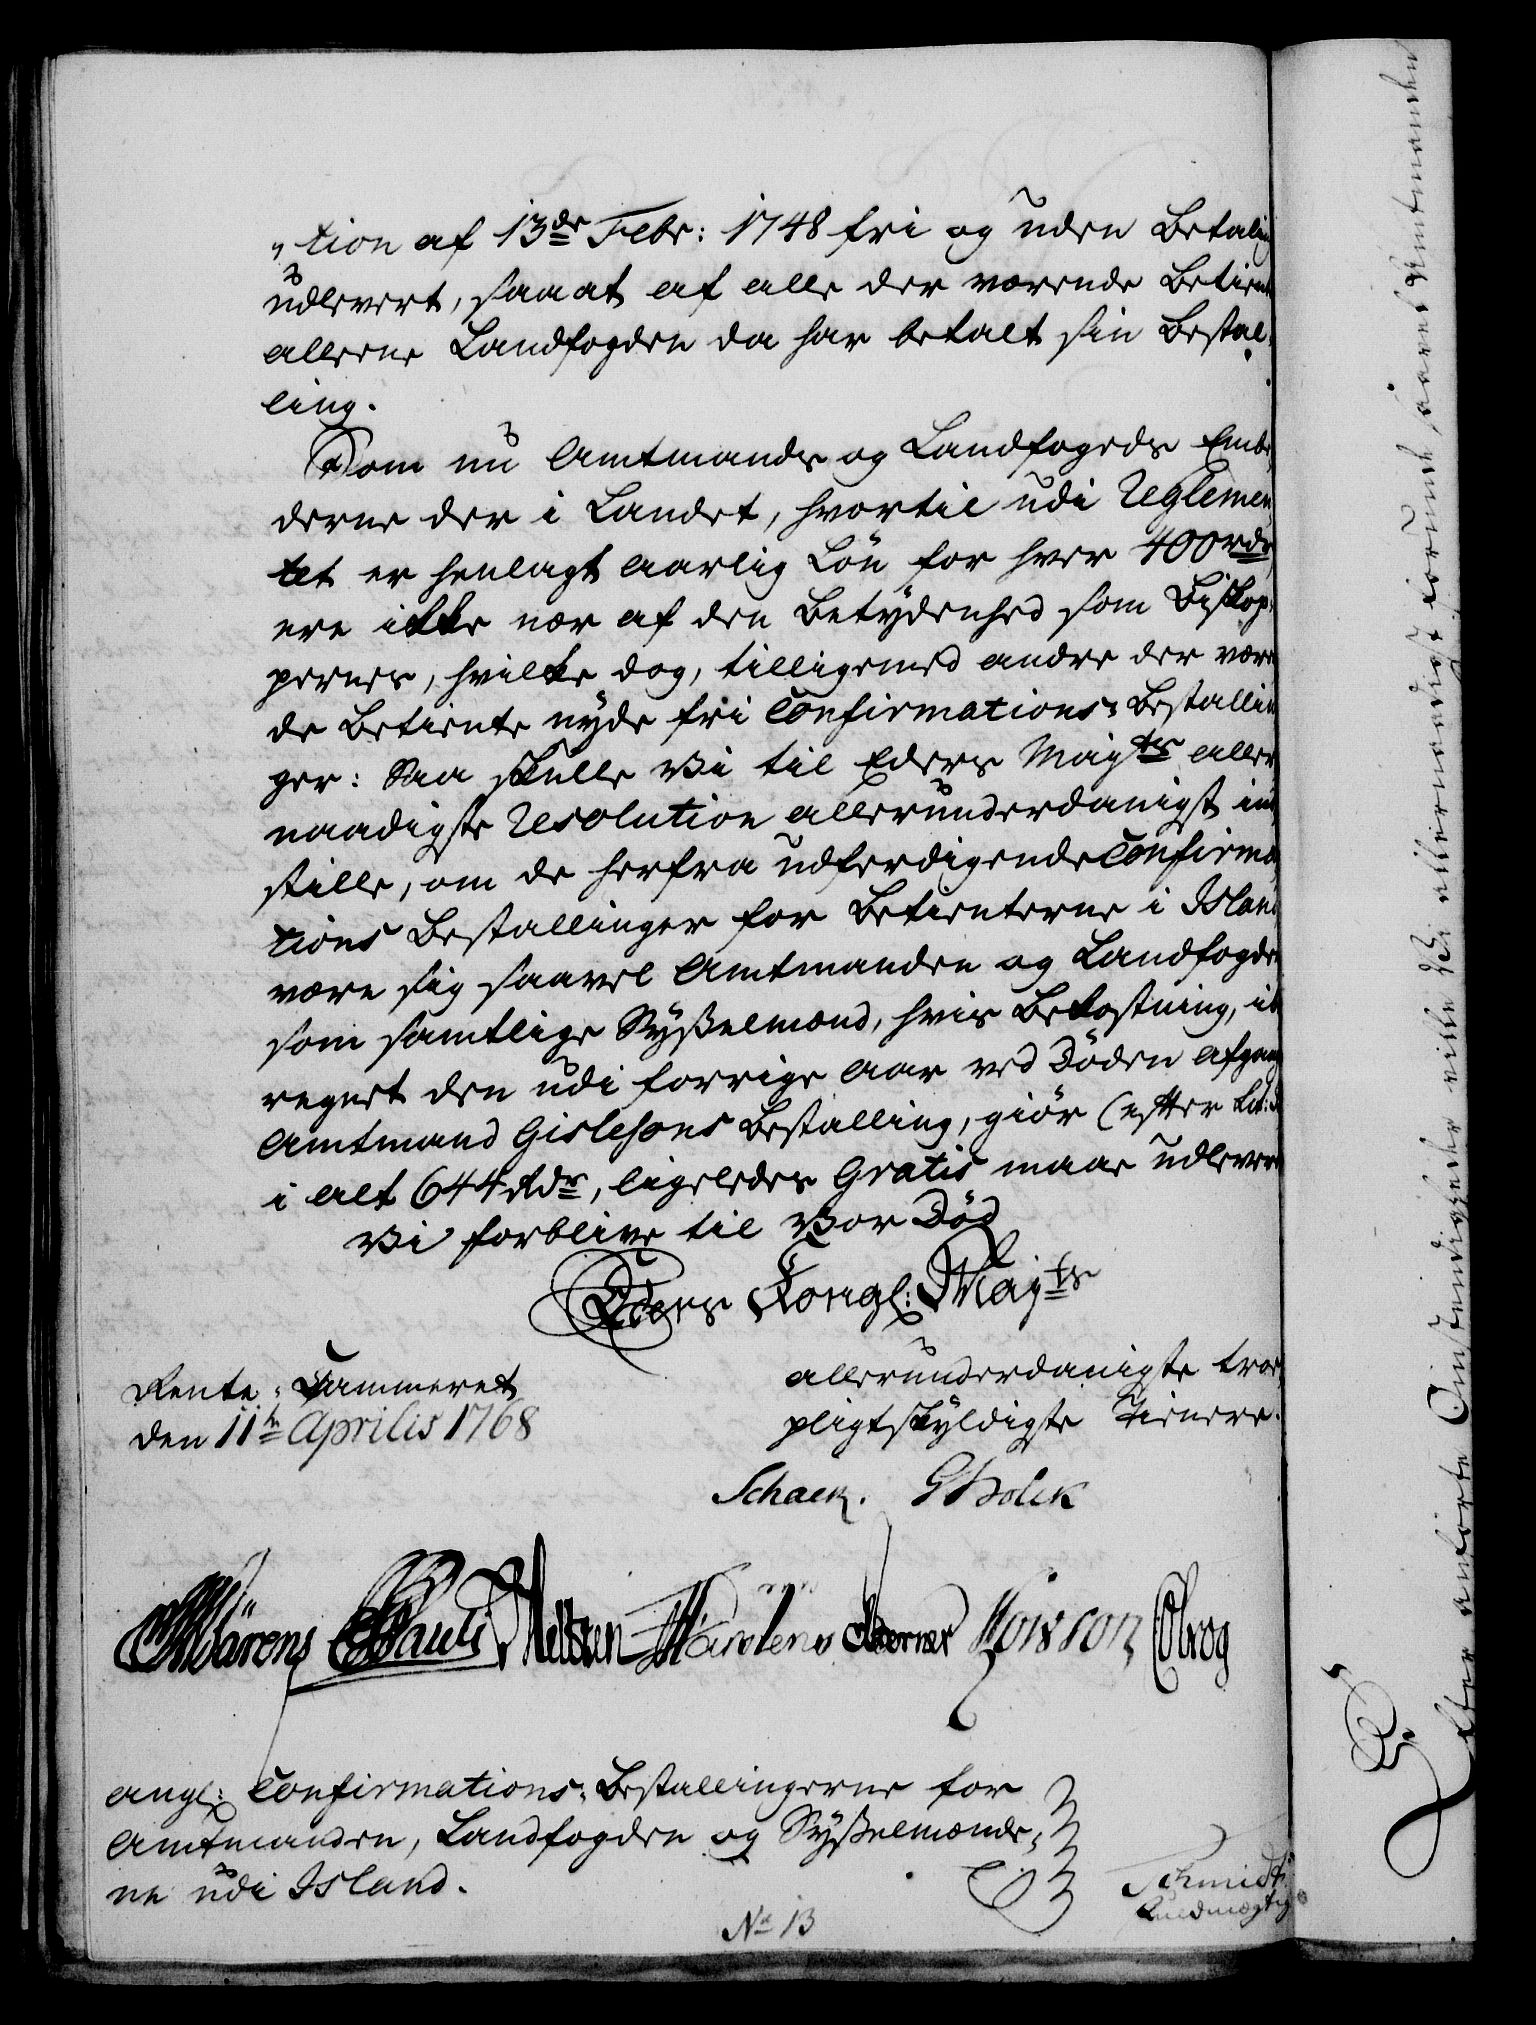 „tion af 13de Febr: 1748 fri og uden Betaling
udlevert, saa at af alle der værende Betiente
alleene Landfogden da har betalt sin Bestal,
ling.
Som nu Amtmands og Landfogeds Embe,
derne der i Landet, hvortil udi Reglemen,
tet er henlagt aarlig Lön for hver 400 rdr,
ere ikke nær af den Betydenhed som Biskop,
pernes, hvilke dog, tilligemed andre der væren
de Betiente nyde fri Confirmations-Bestallin
ger: Saa skulle Vi til Eders Mayts aller
naadigste Resolution allerunderdanigst ind
stille, om de herfra udferdigende Confirma,
tions Bestallinger for Betienterne i Island
være sig saavel Amtmanden og Landfogden
som samtlige Sysselmænd, hvis Bekostning, ibe
regnet den udi forrige Aar ved Döden afgang
Amtmand Gislesons Bestalling, giör (efter Lit:
i alt 644 Rdr, ligeledes Gratis maae udlevere
Vi forblive til Vor Död
Eders Kongl: Mayts
allerunderdanigste troe
pligtskyldigste Tienere.
Rente-Cammeret
den 11te Aprilis 1768
Schack. GHolck
Pauli
angl: Confirmations-Bestallingerne for
Amtmanden, Landfogden og Sysselmænde,
ne udi Island.
Schmidt
Fuldmægtig
No 13
Efter anförte Omstendigheder ville Vi allernaadigst at saavel Amtmanden